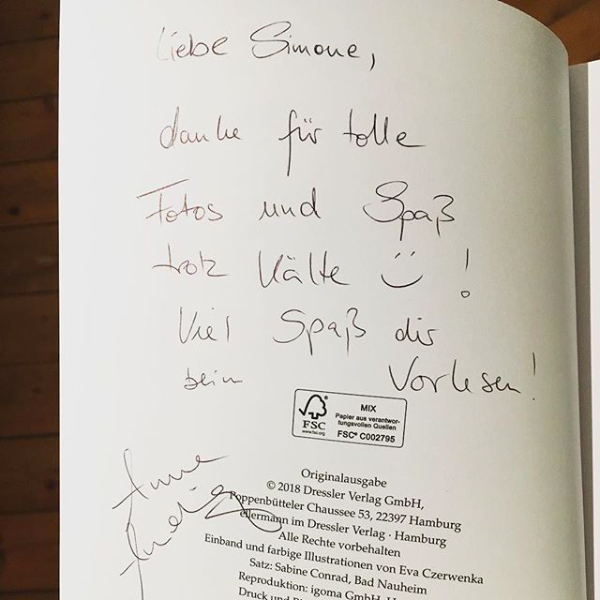 Liebe Simone,
danke für tolle
Fotos und Spaß
trotz Kälte !
Viel Spaß dir
beim Vorlesen!
FSC
www.fsc.org
MIX
Papier aus verantwor-
tungsvollen Quellen
FSC® C002795
Anne
Originalausgabe
© 2018 Dressler Verlag GmbH,
Poppenbütteler Chaussee 53, 22397 Hamburg
ellermann im Dressler Verlag · Hamburg
Alle Rechte vorbehalten
Einband und farbige Illustrationen von Eva Czerwenka
Satz: Sabine Conrad, Bad Nauheim
Reproduktion: igoma GmbH,
Druck und